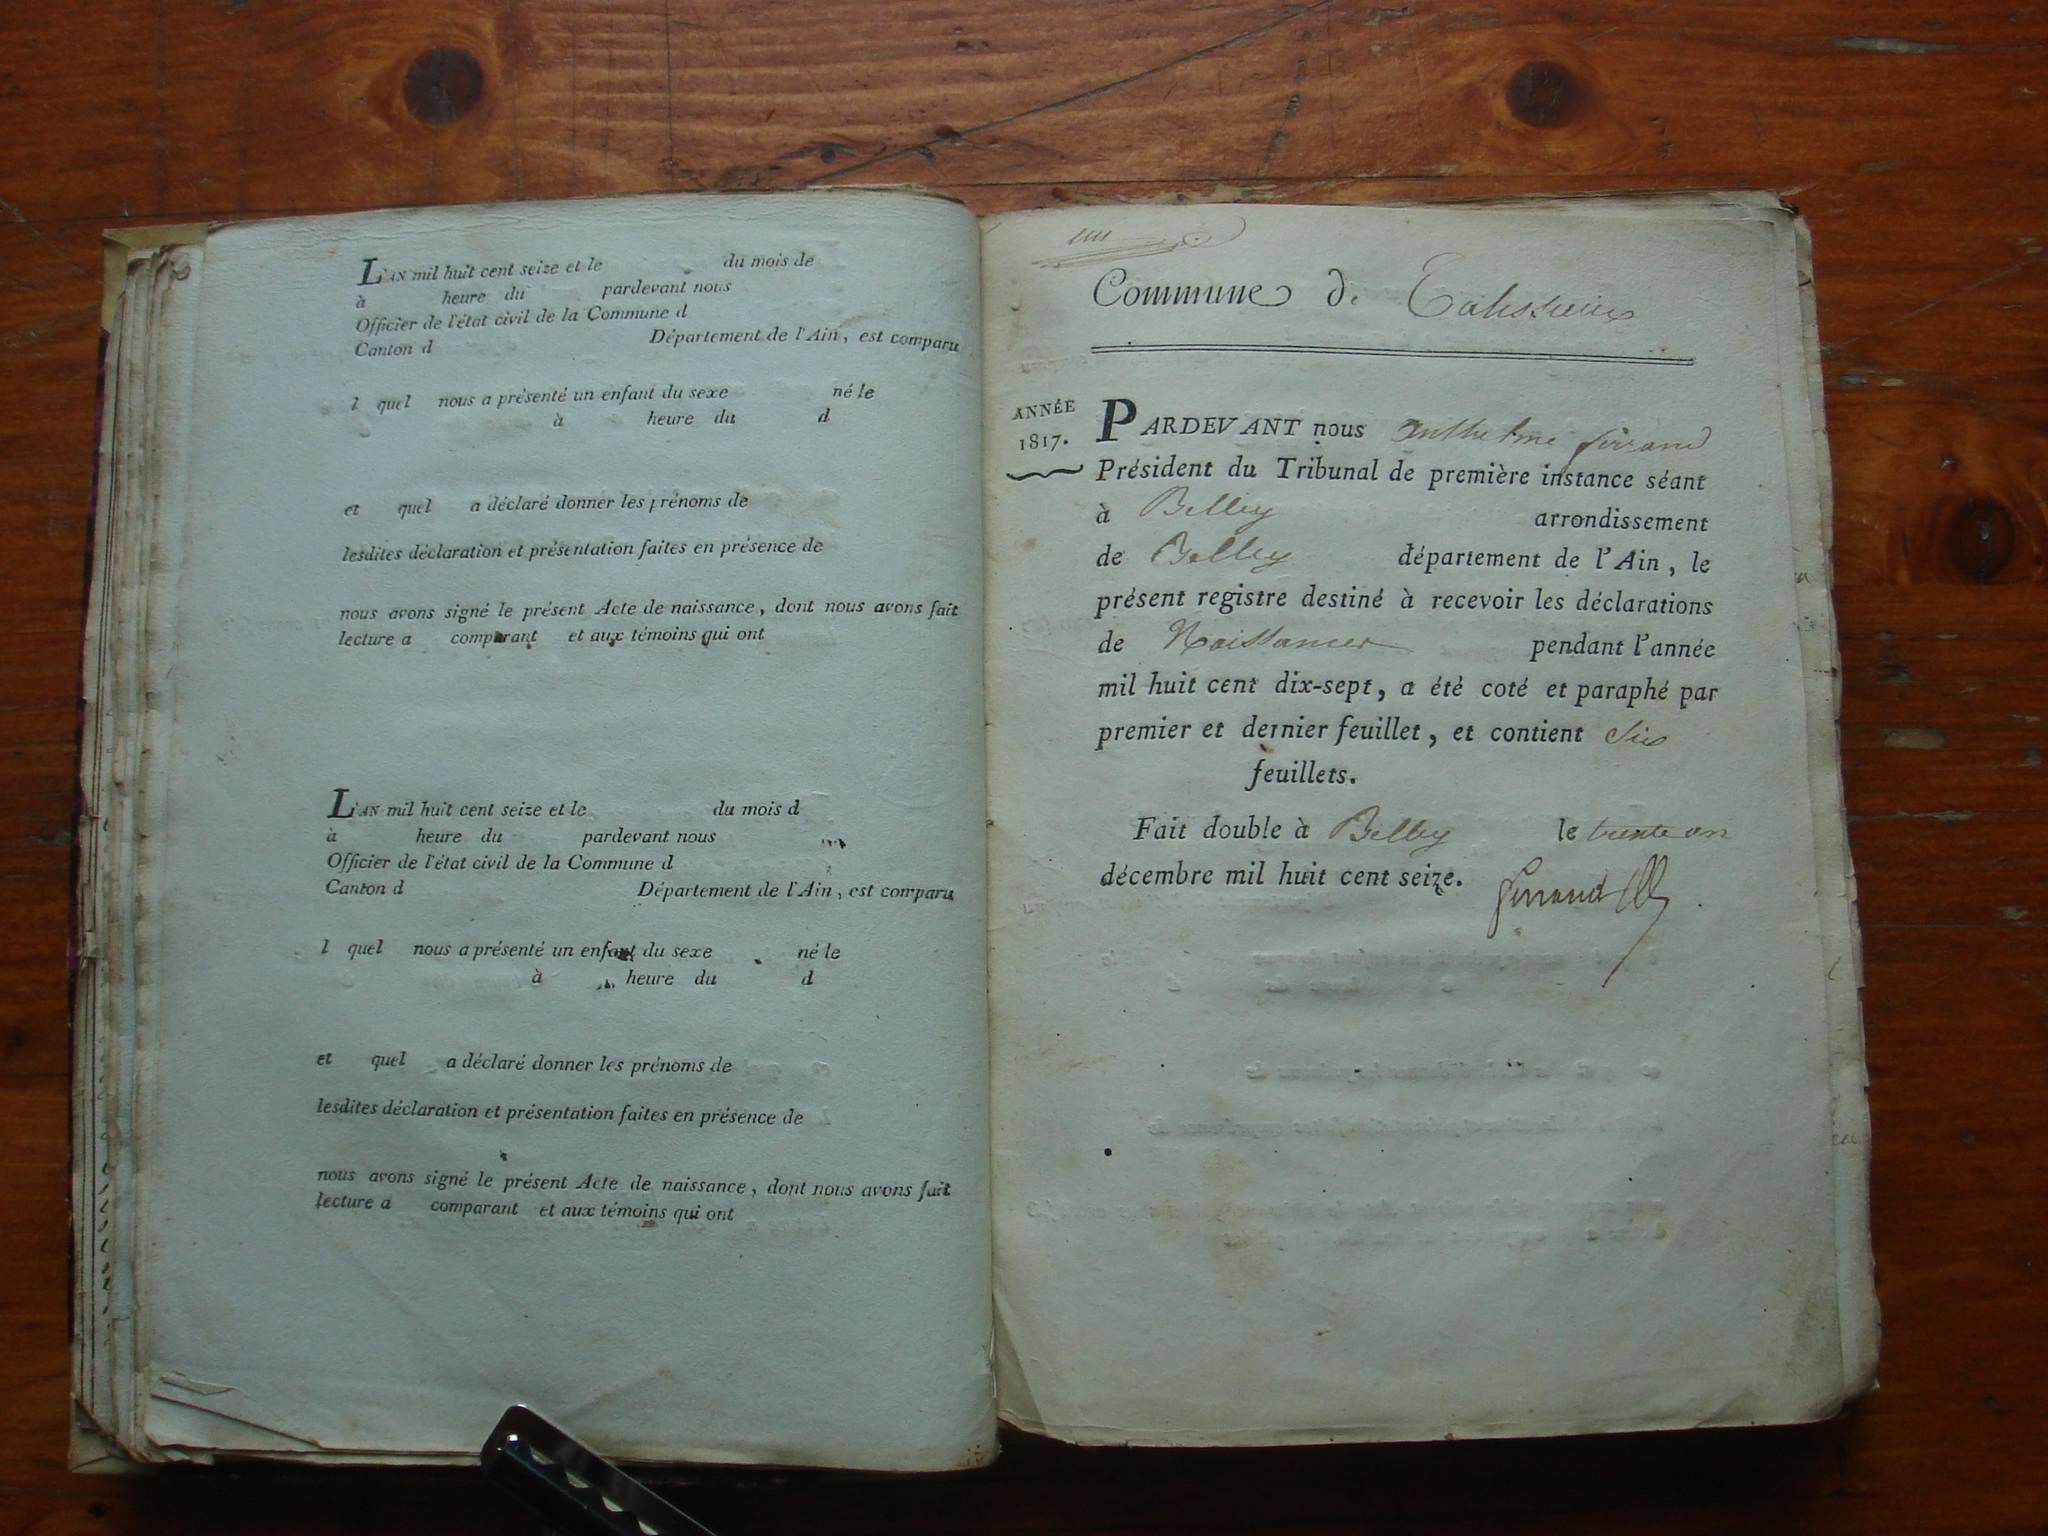 L'AN mil huit cent seize et le du mois de
à heure du pardevant nous
Officier de l'état civil de la Commune d
Canton d Département de l'Ain, est comparu
l quel nous a présenté un enfant du sexe né le
à heure du d
et quel a déclaré donner les prénoms de
lesdites déclaration et présentation faites en présence de
nous avons signé le présent Acte de naissance, dont nous avons fait
lecture a comparant et aux témoins qui ont
L'AN mil huit cent seize et le du mois d
à heure du pardevant nous
Officier de l'état civil de la Commune d
Canton d Département de l'Ain, est comparu
l quel nous a présenté un enfant du sexe né le
à heure du d
et quel a déclaré donner les prénoms de
lesdites déclaration et présentation faites en présence de
nous avons signé le présent Acte de naissance, dont nous avons fait
lecture a comparant et aux témoins qui ont
Commune de Talissieux
ANNÉE
1817.
PARDEVANT nous Anthelme ferrand
Président du Tribunal de première instance séant
à Belley arrondissement
de Belley département de l'Ain, le
présent registre destiné à recevoir les déclarations
de Naissances pendant l'année
mil huit cent dix-sept, a été coté et paraphé par
premier et dernier feuillet, et contient Six
feuillets.
Fait double à Belley le trente un
décembre mil huit cent seize.
ferrand